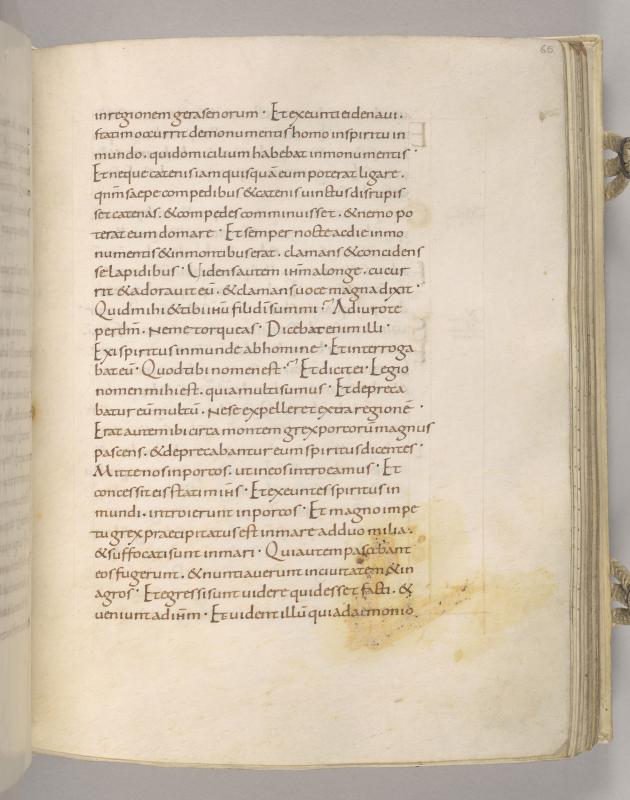 65
inregionem gerasenorum · Et exeunti eidenaui .
statim occurrit demonumentis homo inspiritu in
mundo . quidomicilium habebat inmonumentis ·
Et neque catenis iam quisquā eum poterat ligare .
qnm̄ saepe compedibus & catenis uinctus disrupis
set catenas . & compedes comminuisset . & nemo po
terat eum domare · Et semper nocte acdie inmo
numentis & inmontibus erat . clamans & concidens
se lapidibus · Uidens autem ih̄m alonge . cucur
rit & adorauit eū . & clamans uoce magna dixit ·
Quid mihi & tibi ihū fili dī summi · Adiuro te
per dm̄ . Neme torqueas · Dicebat enim illi ·
Exi spiritus inmunde abhomine · Et interroga
bat eū · Quod tibi nomen est · Et dicit ei · Legio
nomen mihi est . quia multi sumus · Et depreca
batur eū multū . Nese expelleret extra regionē ·
Erat autem ibi circa montem grex porcorū magnus
pascens . & deprecabantur eum spiritus dicentes ·
Mitte nos inporcos . ut ineos introeamus · Et
concessit eis statim ih̄s · Et exeuntes spiritus in
mundi . introierunt inporcos · Et magno impe
tu grex praecipitatus est inmare adduo milia .
& suffocati sunt inmari · Qui autem pascebant
eos fugerunt . & nuntiauerunt inciuitatem & in
agros · Et egressi sunt uidere quid esset facti . &
ueniunt ad ih̄m · Et uident illū qui adaemonio